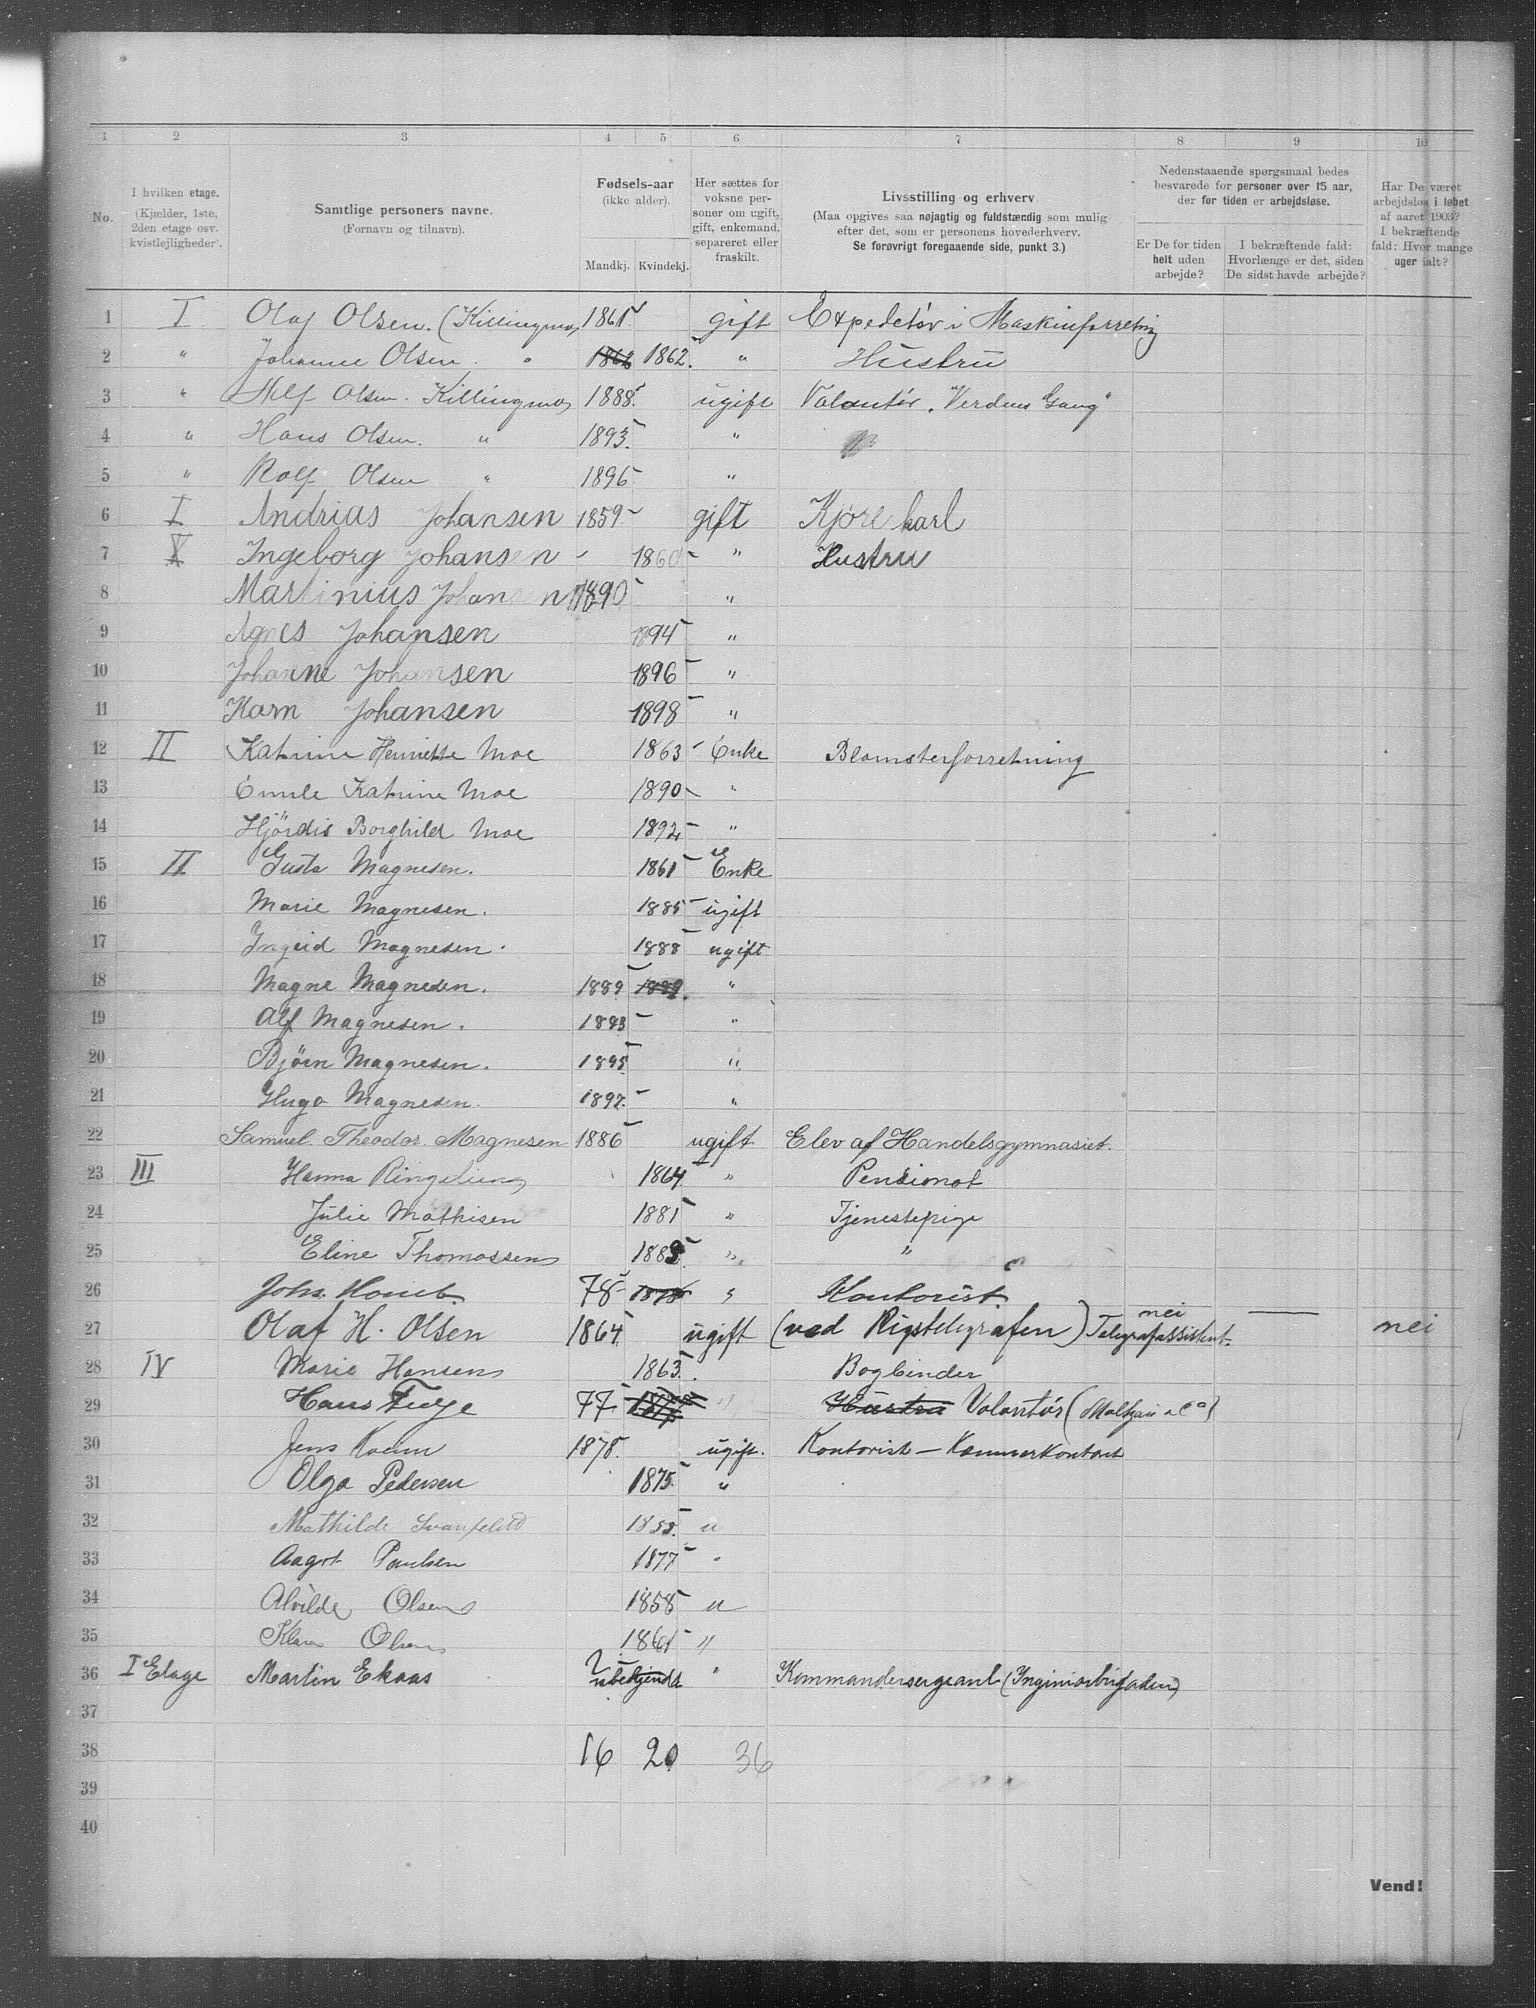 1 2 3 4 5 6 7 8 9 10
No.
I hvilken etage.
(Kjælder, 1ste,
2den etage osv.
kvistlejligheder).
Samtlige personers navne.
(Fornavn og tilnavn).
Fødsels-aar
(ikke alder).
Mandkj. Kvindekj.
Her sættes for
voksne per-
soner om ugift,
gift, enkemand,
separeret eller
fraskilt.
Livsstilling og erhverv
(Maa opgives saa nøjagtig og fuldstændig som mulig
efter det, som er personens hovederhverv.
Se forøvrigt foregaaende side, punkt 3.)
Nedenstaaende spørgsmaal bedes
besvarede for personer over 15 aar,
der for tiden er arbejdsløse.
Er De for tiden
helt uden
arbejde?
I bekræftende fald:
Hvorlænge er det, siden
De sidst havde arbejde?
Har De været
arbejdsløs i løbet
af aaret 1903?
I bekræftende
fald: Hvor mange
uger ialt?
1 I Olaf Olsen. (Killingmo) 1861 gift Expeditør i Maskinforretnig
2 " Johanne Olsen " 1862 1862. " Hustru
3 " Alf Olsen. Killingmo, 1888. ugift Volontør „Verdens Gang"
4 " Hans Olsen. " 1893. "
5 " Rolf Olsen " 1896 "
6 I Andrias Johansen 1859 - gift Kjøre karl
7 Ingeborg Johansen - 1860 - " Hustru
8 Martinius Johansen 1890 "
9 Agnes Johansen 1894 "
10 Johanne Johansen 1896 "
11 Karn Johansen 1898 "
12 II Katrine Henriette Moe 1863 - Enke Blomsterforretning
13 Katrine Moe 1890 - "
14 Hjördis Borghild Moe 1892 "
15 II Gusta Magnesen. 1861 - Enke
16 Marie Magnesen. 1885 - ugift
17 Ingrid Magnesen. 1888 - ugift
18 Magne Magnesen. 1889 "
19 Alf Magnesen. 1893 - "
20 Bjørn Magnesen. 1895 "
21 Hugo Magnesen. 1897. - "
22 Samuel. Theodor. Magnesen 1886 ugift Elev af Handelsgymnasiet.
23 III Hanna 1864 " Pensionat
24 Julie Mathisen 1881 " Tjenestepige
25 Eline Thomassen 1885 " "
26 Johs. 78 1878 " Kontorist
27 Olaf H. Olsen 1864 ugift (ved Rigstelegrafen) Telegrafassistent. nei — nei
28 IV Marie Hansen 1863. Bogbinder
29 Hans 77 " Hustru Volontør (
30 Jens 1878. ugift. Kontorist — Kæmnerkontoret
31 Olga Pedersen 1875 "
32 Mathilde "
33 Aagot Paulsen 1877 "
34 Alvilde Olsen 1858 "
35 Klara Olsen 1861 "
36 I Etage Martin Ekaas ubekjendt " Kommandersergeant (Ingeniørbrigaden)
37
38 16 20 36
39
40
Vend!